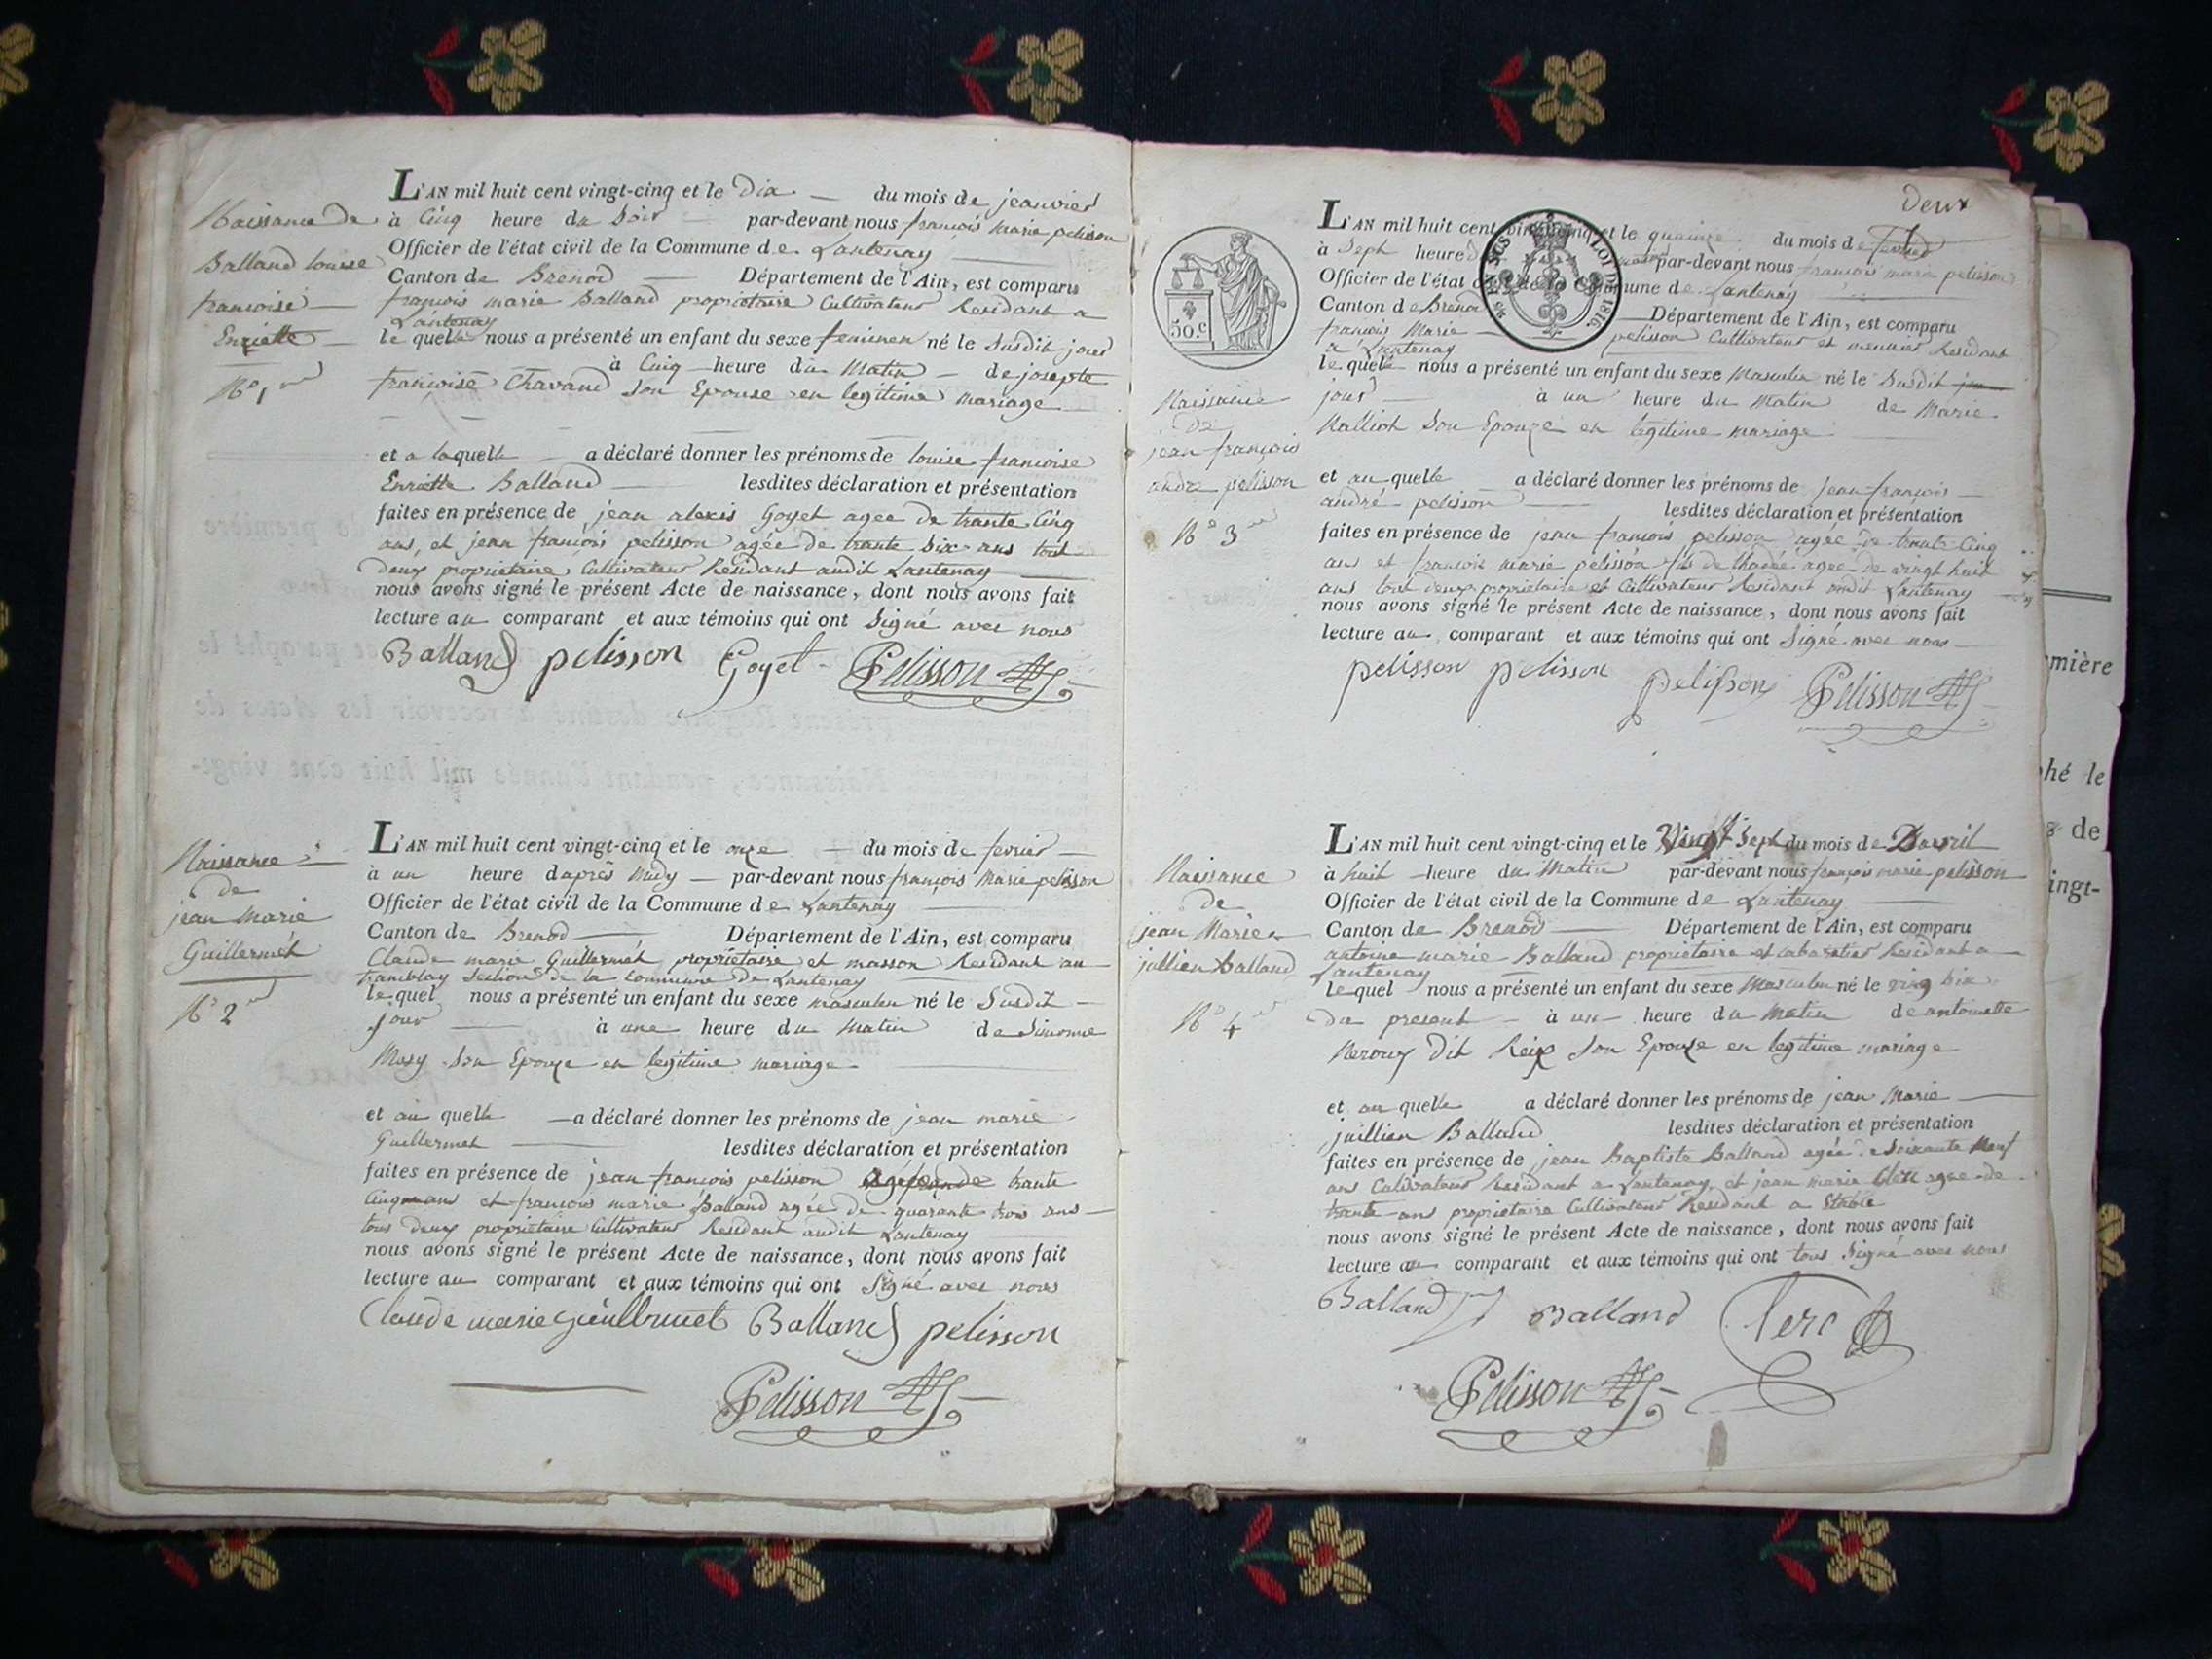 Naissance de
Balland louise
francoise
Enriette
N° 1
L'AN mil huit cent vingt-cinq et le Dix du mois de jeanvier
à Cinq heure du Soir par-devant nous françois marie pelisson
Officier de l'état civil de la Commune de Lantenay
Canton de Brenod Département de l'Ain, est comparu
françois marie Balland propriétaire Cultivateur Residant a
Lantenay
le quelle nous a présenté un enfant du sexe feminen né le Susdit jour
à Cinq heure du Matin de josepte
francoise Chavand Son Epouse en legitime mariage
et a laquelle a déclaré donner les prénoms de louise francoise
Enriette Balland lesdites déclaration et présentation
faites en présence de jean alexis Goyet agee de trante Cinq
ans, et jean francois pelisson agée de trante Six ans tout
deux propriétaire Cultivateur Residant audit Lantenay
nous avons signé le présent Acte de naissance, dont nous avons fait
lecture au comparant et aux témoins qui ont Signé avec nous
Balland pelisson Goyet Pelisson
Naissance
de
jean Marie
Guillermét
N° 2
L'AN mil huit cent vingt-cinq et le onze du mois de fevrier
à un heure daprès Midy par-devant nous françois Marie pelisson
Officier de l'état civil de la Commune de Lantenay
Canton de Brenod Département de l'Ain, est comparu
Claude marie Guillermét propriétaire et masson Residant au
tramblay Section de la commune de Lantenay
lequel nous a présenté un enfant du sexe masculen né le Susdit
jour à une heure du Matin de Simonne
Mosy Son Epouze en legitime mariage
et au quelle a déclaré donner les prénoms de jean marie
Guillermet lesdites déclaration et présentation
faites en présence de jean françois pelisson trante
Cinq ans et françois marie Balland agée de quarante trois ans
tous deux propriétaire Cultivateur Residant audit Lantenay
nous avons signé le présent Acte de naissance, dont nous avons fait
lecture au comparant et aux témoins qui ont Signé avec nous
Claude marie guillermet Balland pelisson
Pelisson
Deux
50.c
EN SUS LOI DE 1816.
Naissance
de
jean françois
andré pelisson
N° 3
L'AN mil huit cent vingt-cinq et le quainze du mois de fevrier
à Sept heure par-devant nous francois marie pelisson
Officier de l'état civil de la Commune de Lantenay
Canton de Brenod Département de l'Ain, est comparu
françois Marie pelisson Cultivateur et meunier Residant
a Lantenay
le quelle nous a présenté un enfant du sexe Masculin né le Susdit
jour à un heure du Matin de Marie
Nalliot Son Epouze en legitime mariage
et au quelle a déclaré donner les prénoms de jean francois
andré pelisson lesdites déclaration et présentation
faites en présence de jean françois pelisson agée de trante Cinq
ans et francois marie pelisson fils de thadée agee de vingt huit
ans tous deux propriétaire et Cultivateur Residant audit Lantenay
nous avons signé le présent Acte de naissance, dont nous avons fait
lecture au comparant et aux témoins qui ont Signé avec nous
pelisson pelisson pelisson Pelisson
Naissance
de
jean Marie
jullien Balland
N° 4
L'AN mil huit cent vingt-cinq et le Vingt Sept du mois de Davril
à huit heure du Matin par-devant nous françois marie pelisson
Officier de l'état civil de la Commune de Lantenay
Canton de Brenod Département de l'Ain, est comparu
antoine marie Balland propriétaire et Residant a
Lantenay
lequel nous a présenté un enfant du sexe Masculen né le ving Six
du present à un heure du Matin de antoinette
Neroux dit Reix Son Epouze en legitime mariage
et au quelle a déclaré donner les prénoms de jean Marie
juillien Balland lesdites déclaration et présentation
faites en présence de jean Baptiste Balland agée de Soixante Neuf
ans Cultivateur Residant a Lantenay, et jean marie Clerc agee de
trante ans propriétaire Cultivateur Residant a Stable
nous avons signé le présent Acte de naissance, dont nous avons fait
lecture au comparant et aux témoins qui ont tous Signé avec nous
Balland Balland Clerc
Pelisson
mière
hé le
de
ingt-